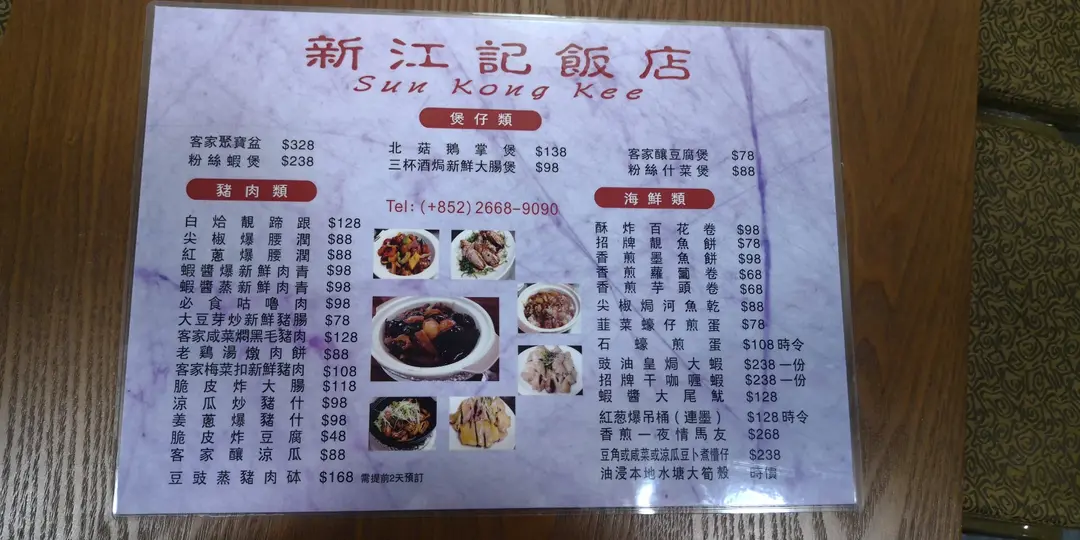 新江記飯店
Sun Kong Kee
煲仔類
客家聚寶盆 $328
粉絲蝦煲 $238
北菇鵝掌煲 $138
三杯酒焗新鮮大腸煲 $98
客家釀豆腐煲 $78
粉絲什菜煲 $88
豬肉類
白烚靚蹄跟 $128
尖椒爆腰潤 $88
紅蔥爆腰潤 $88
蝦醬爆新鮮肉青 $98
蝦醬蒸新鮮肉青 $98
必食咕嚕肉 $98
大豆芽炒新鮮豬腸 $78
客家咸菜燜黑毛豬肉 $128
老鷄湯燉肉餅 $88
客家梅菜扣新鮮豬肉 $108
脆皮炸大腸 $118
涼瓜炒豬什 $98
姜蔥爆豬什 $98
脆皮炸豆腐 $48
客家釀涼瓜 $88
豆豉蒸豬肉砵 $168 需提前2天預訂
Tel: (+852) 2668-9090
海鮮類
酥炸百花卷 $98
招牌靚魚餅 $78
香煎墨魚餅 $98
香煎蘿蔔卷 $68
香煎芋頭卷 $68
尖椒焗河魚乾 $88
韮菜蠔仔煎蛋 $78
石蠔煎蛋 $108 時令
豉油皇焗大蝦 $238 一份
招牌干咖喱蝦 $238 一份
蝦醬大尾魷 $128
紅葱爆吊桶(連墨) $128 時令
香煎一夜情馬友 $268
豆角或咸菜或涼瓜豆卜煮懵仔 $238
油浸本地水塘大筍殼 時價